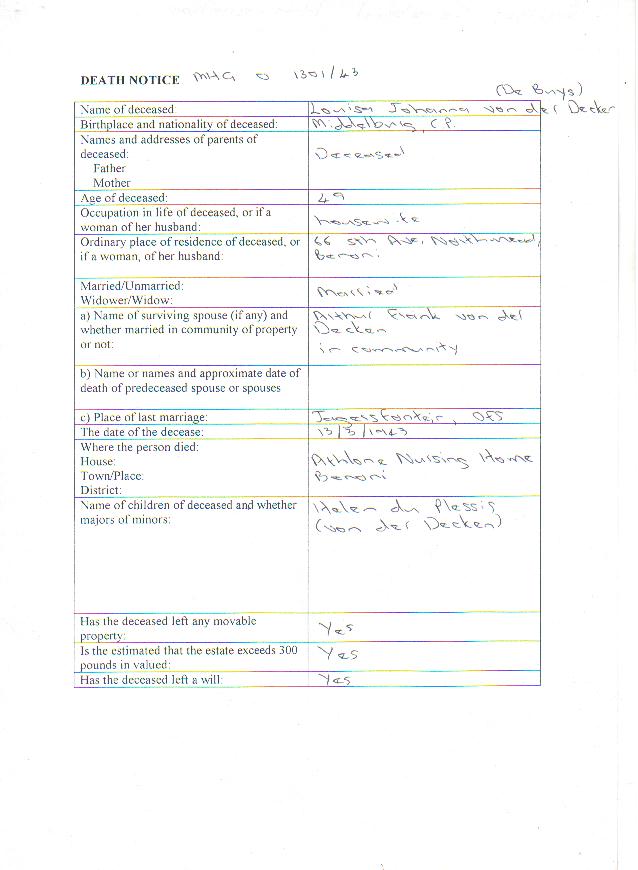 DEATH NOTICE MHG O 1301/43
(De Buys)
Name of deceased: Louisa Johanna von der Decken
Birthplace and nationality of deceased: Middelburg, C.P.
Names and addresses of parents of
deceased: Deceased
Father
Mother
Age of deceased: 49
Occupation in life of deceased, or if a
woman of her husband: housewife
Ordinary place of residence of deceased, or 66 5th Ave, Northmead,
if a woman, of her husband: Benoni.
Married/Unmarried: Married
Widower/Widow:
a) Name of surviving spouse (if any) and Arthur Frank von der
whether married in community of property Decken
or not: in community
b) Name or names and approximate date of
death of predeceased spouse or spouses
c) Place of last marriage: Jagersfontein, OFS
The date of the decease: 13/3/1943
Where the person died:
House: Athlone Nursing Home
Town/Place: Benoni
District:
Name of children of deceased and whether Helen du Plessis
majors of minors: (von der Decken)
Has the deceased left any movable
property: Yes
Is the estimated that the estate exceeds 300 Yes
pounds in valued:
Has the deceased left a will: Yes